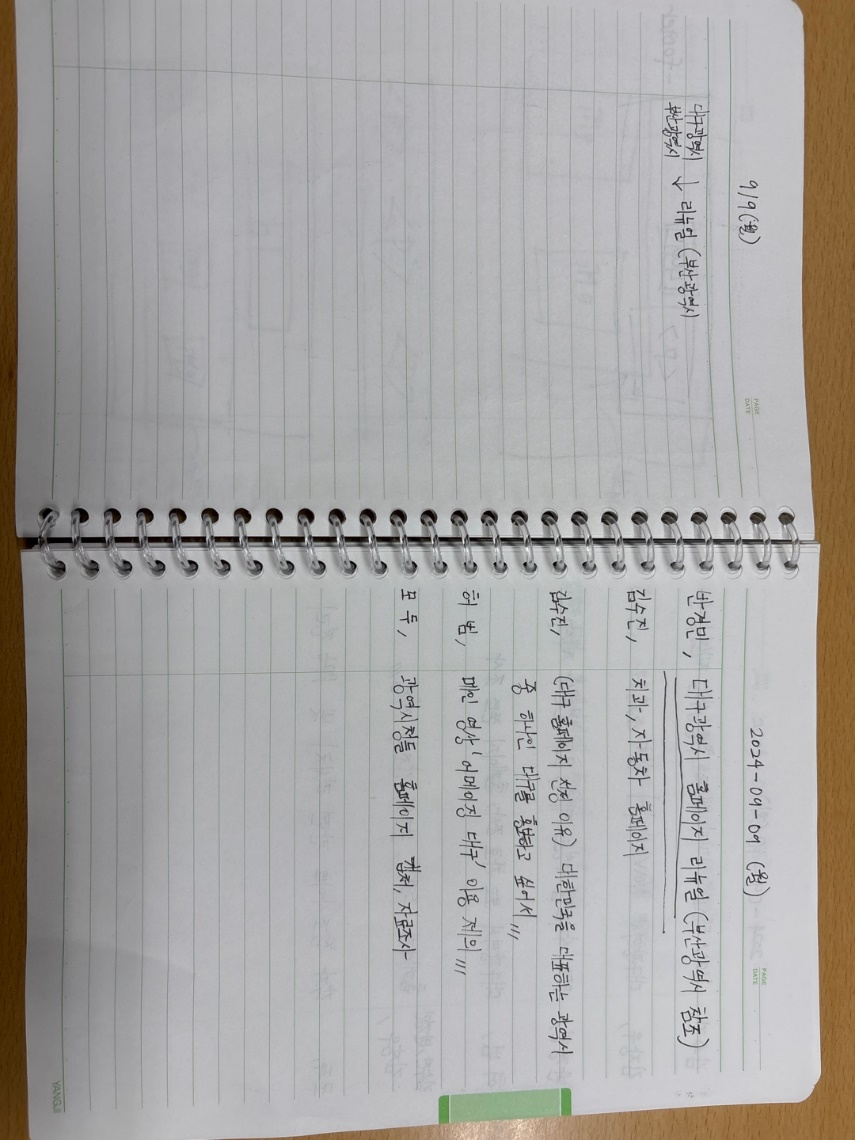 9/9 (월)
대구광역시
부산광역시 → 리뉴얼 (부산광역시
PAGE
DATE
2024-09-09 (월)
PAGE
DATE
반경민, 대구광역시 홈페이지 리뉴얼 (부산광역시 참조)
김수진, 치과, 자동차 홈페이지
김수진, (대구 홈페이지 선정 이유) 대한민국을 대표하는 광역시
중 하나인 대구를 홍보하고 싶어서,,,
허 범, 메인 영상 '어메이징 대구' 이용 제의,,,
모 두, 광역시청들 홈페이지 캡쳐, 자료조사